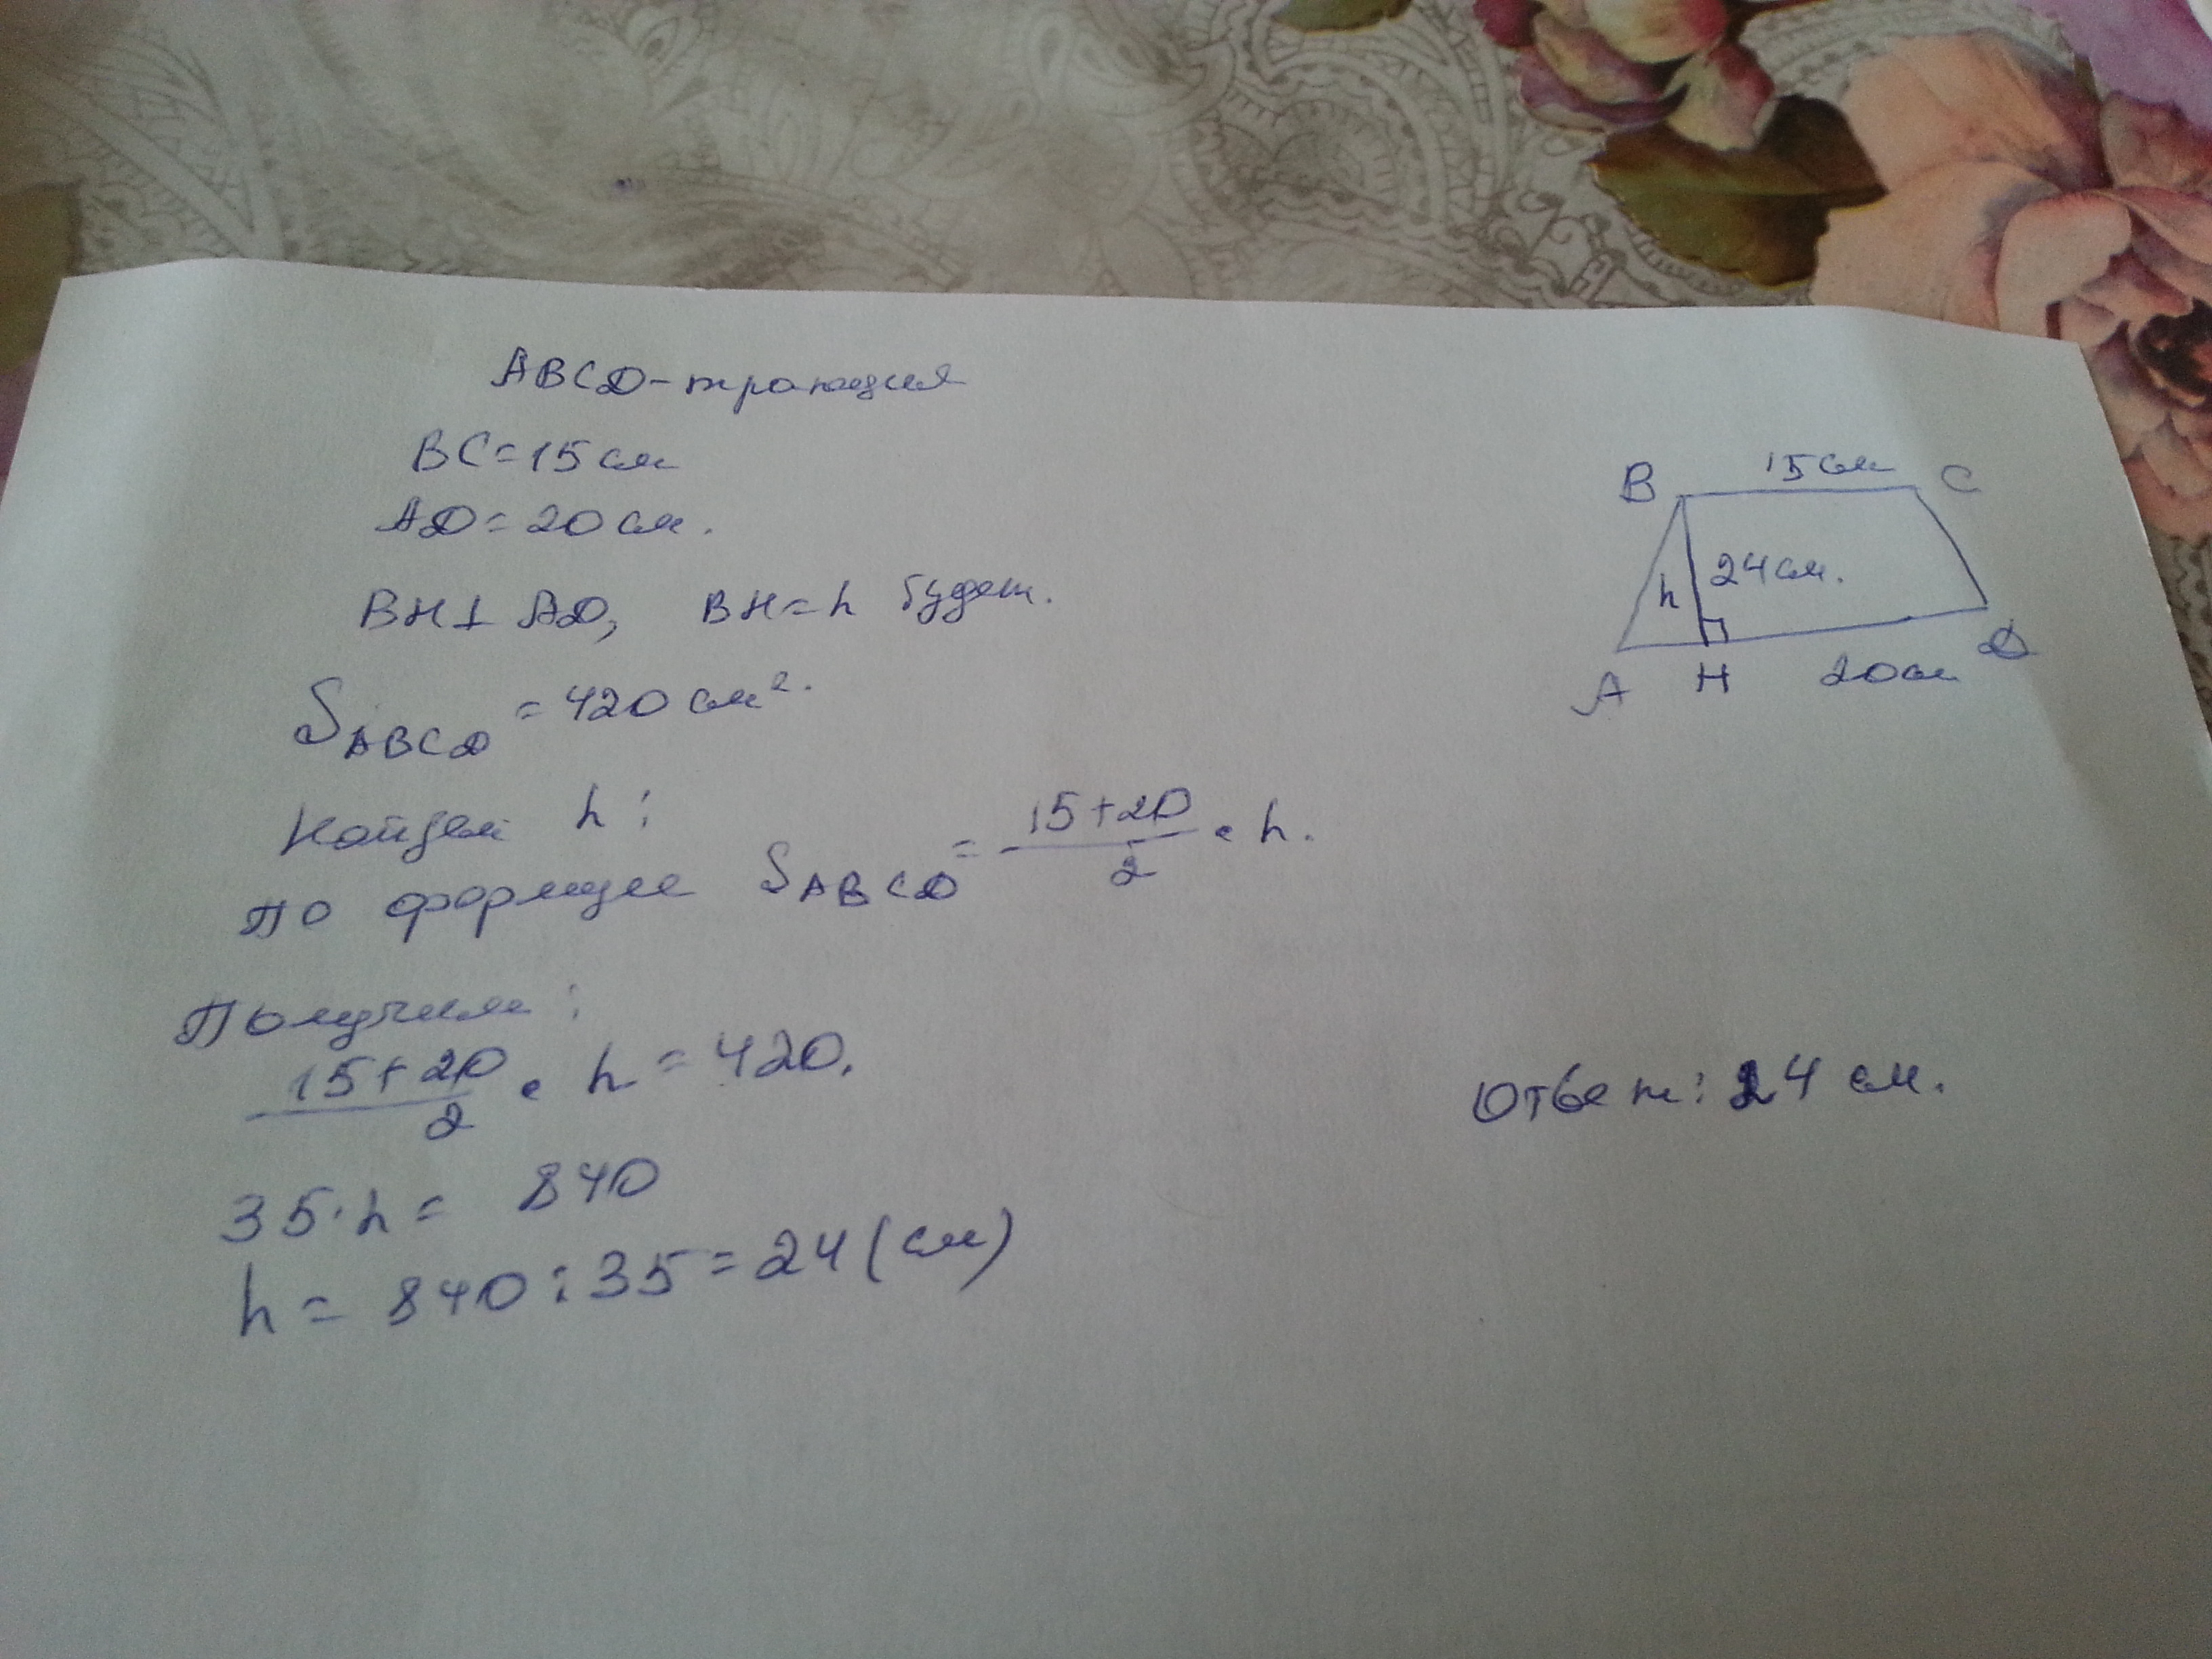 ABCD - трапеция
BC = 15 см
AD = 20 см.
BH ⊥ AD, BH = h будет.
S ABCD = 420 см².
Найдем h:
по формуле S ABCD = (15+20)/2 · h.
Получим:
(15+20)/2 · h = 420.
35 · h = 840
h = 840 : 35 = 24 (см)
B 15 см C
h 24 см.
A H 20 см D
Ответ: 24 см.